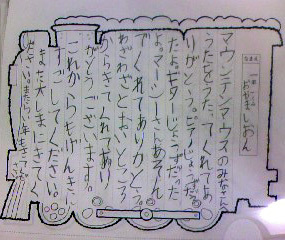 なまえ
おがましおん
マウンテンマウスのみなさん
うたをうたってくれてあ
りがとう。ピアノじょうずだっ
たよ。ギターじょうずだった
よ。マーシーさんあそん
でくれてありがとう。
わざわざとおいところ
からきてくれてあり
がとうございます。
これからもげんきに
すごしてください。
また大しまにきてく
ださい。